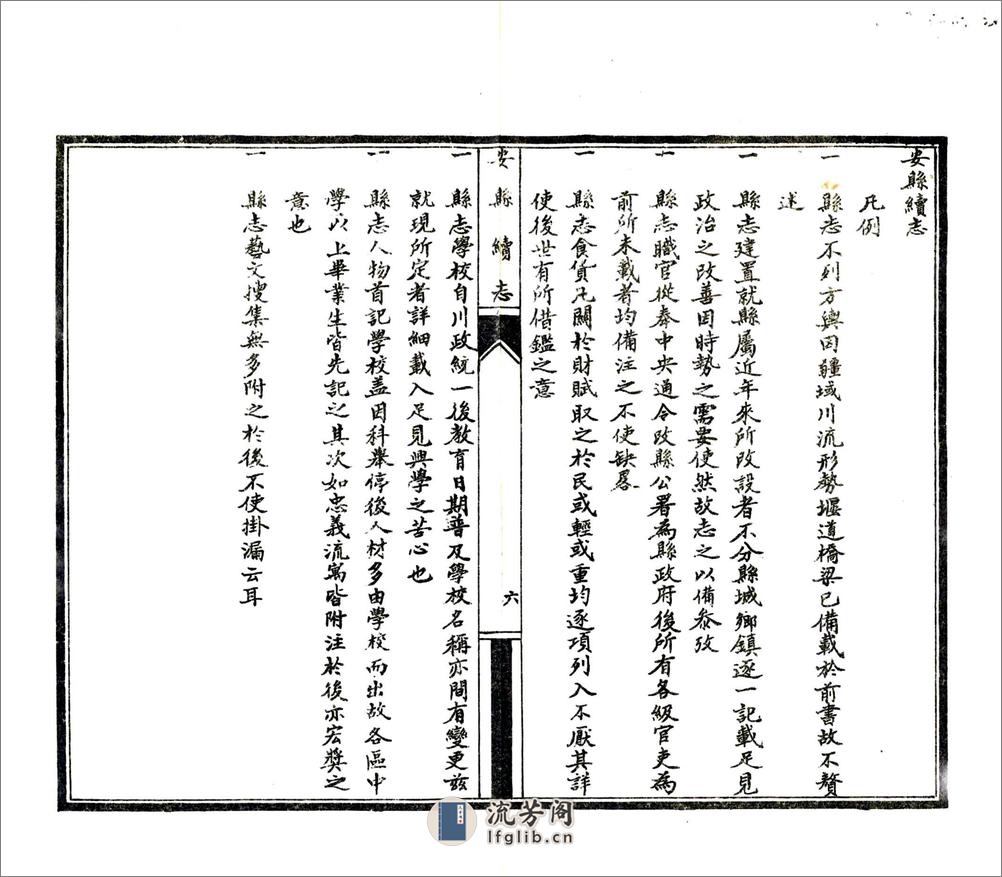 安縣續志
凡例
一 縣志不列方輿因疆域川流形勢堰道橋梁已備載於前書故不贅
述
一 縣志建置就縣屬近年來所改設者不分縣城鄉鎮逐一記載足見
政治之改善因時勢之需要使然故志之以備參攷
一 縣志職官從奉中央通令改縣公署為縣政府後所有各級官吏為
前所未載者均備注之不使缺畧
一 縣志食貨凡關於財賦取之於民或輕或重均逐項列入不厭其詳
使後世有所借鑑之意
安縣續志
六
一 縣志學校自川政統一後教育日期普及學校名稱亦間有變更茲
就現所定者詳細載入足見興學之苦心也
一 縣志人物首記學校蓋因科舉停後人材多由學校而出故各區中
學以上畢業生皆先記之其次如忠義流寓皆附注於後亦宏獎之
意也
一 縣志藝文搜集無多附之於後不使掛漏云耳
流芳阁
lfglib.cn